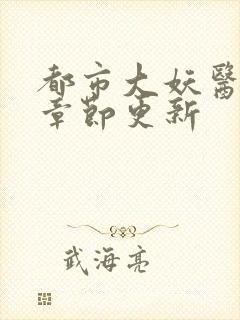 都市大妖醫
章節更新
武海亮